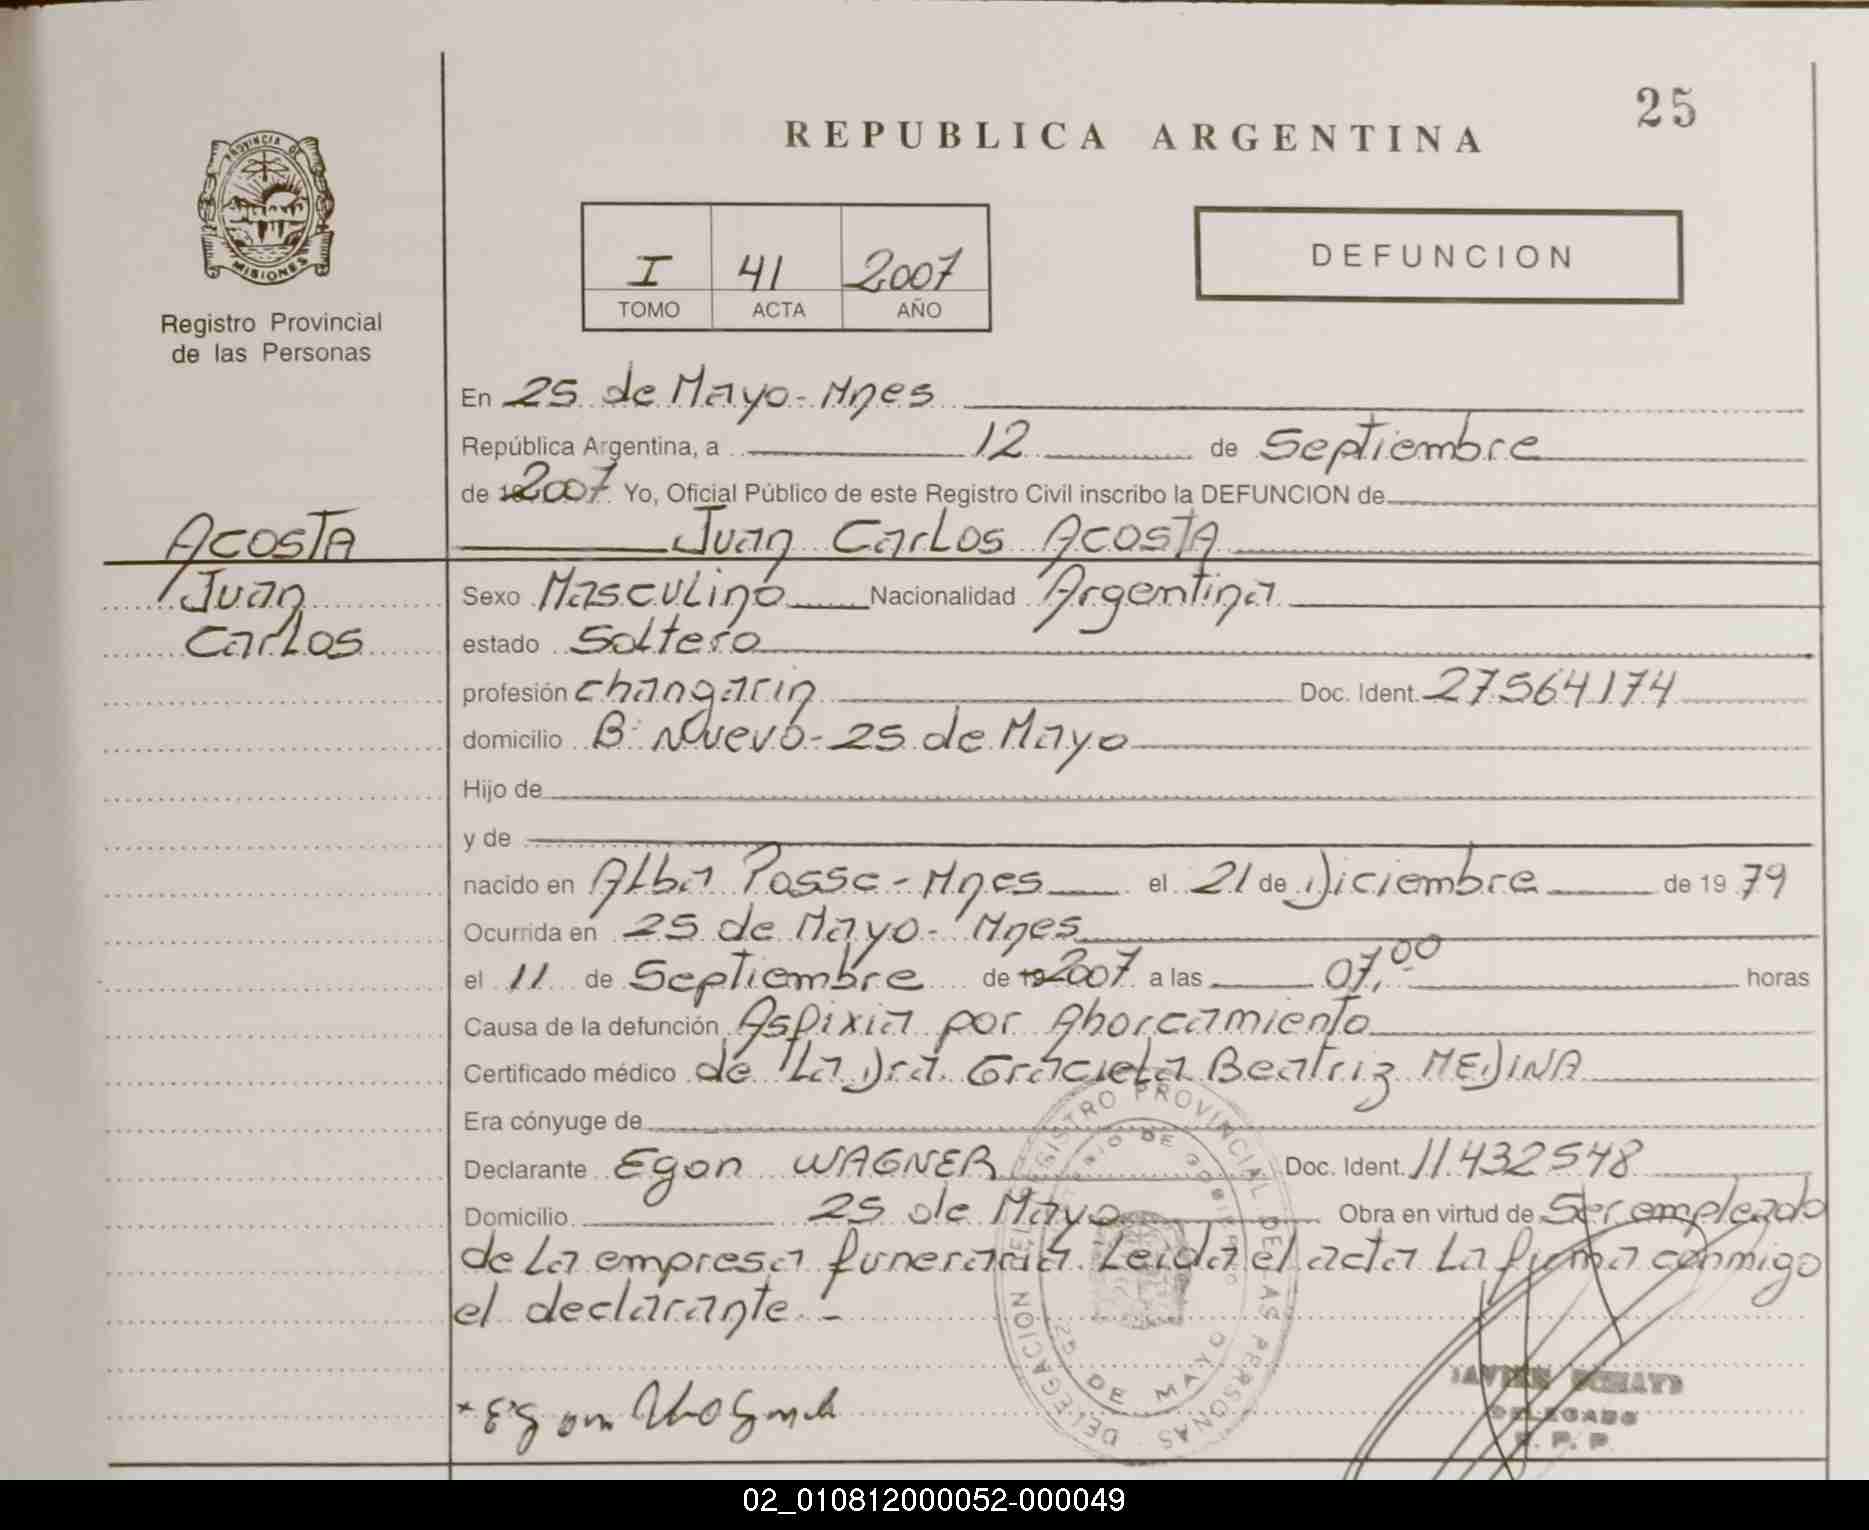 25
REPUBLICA ARGENTINA
PROVINCIA DE
MISIONES
Registro Provincial
de las Personas
I 41 2007
TOMO ACTA AÑO
DEFUNCION
En 25 de Mayo - Mnes
República Argentina, a 12 de Septiembre
de 2007 Yo, Oficial Público de este Registro Civil inscribo la DEFUNCION de
Juan Carlos ACOSTA
ACOSTA
Juan
Carlos
Sexo Masculino Nacionalidad Argentina
estado Soltero
profesión changarin Doc. Ident. 27564174
domicilio B: Nuevo - 25 de Mayo
Hijo de
y de
nacido en Alba Posse - Mnes el 21 de Diciembre de 19 79
Ocurrida en 25 de Mayo - Mnes
el 11 de Septiembre de 2007 a las 07,00 horas
Causa de la defunción Asfixia por Ahorcamiento
Certificado médico de La Dra. Graciela Beatriz MEDINA
Era cónyuge de
Declarante Egon WAGNER Doc. Ident. 11.432548
Domicilio 25 de Mayo Obra en virtud de Ser empleado
de La empresa funeraria. Leida el acta La firma conmigo
el declarante. -
REGISTRO PROVINCIAL DE LAS PERSONAS
DELEGACION
25 DE MAYO
* Egon
DELEGADO
R. P. P.
02_010812000052-000049